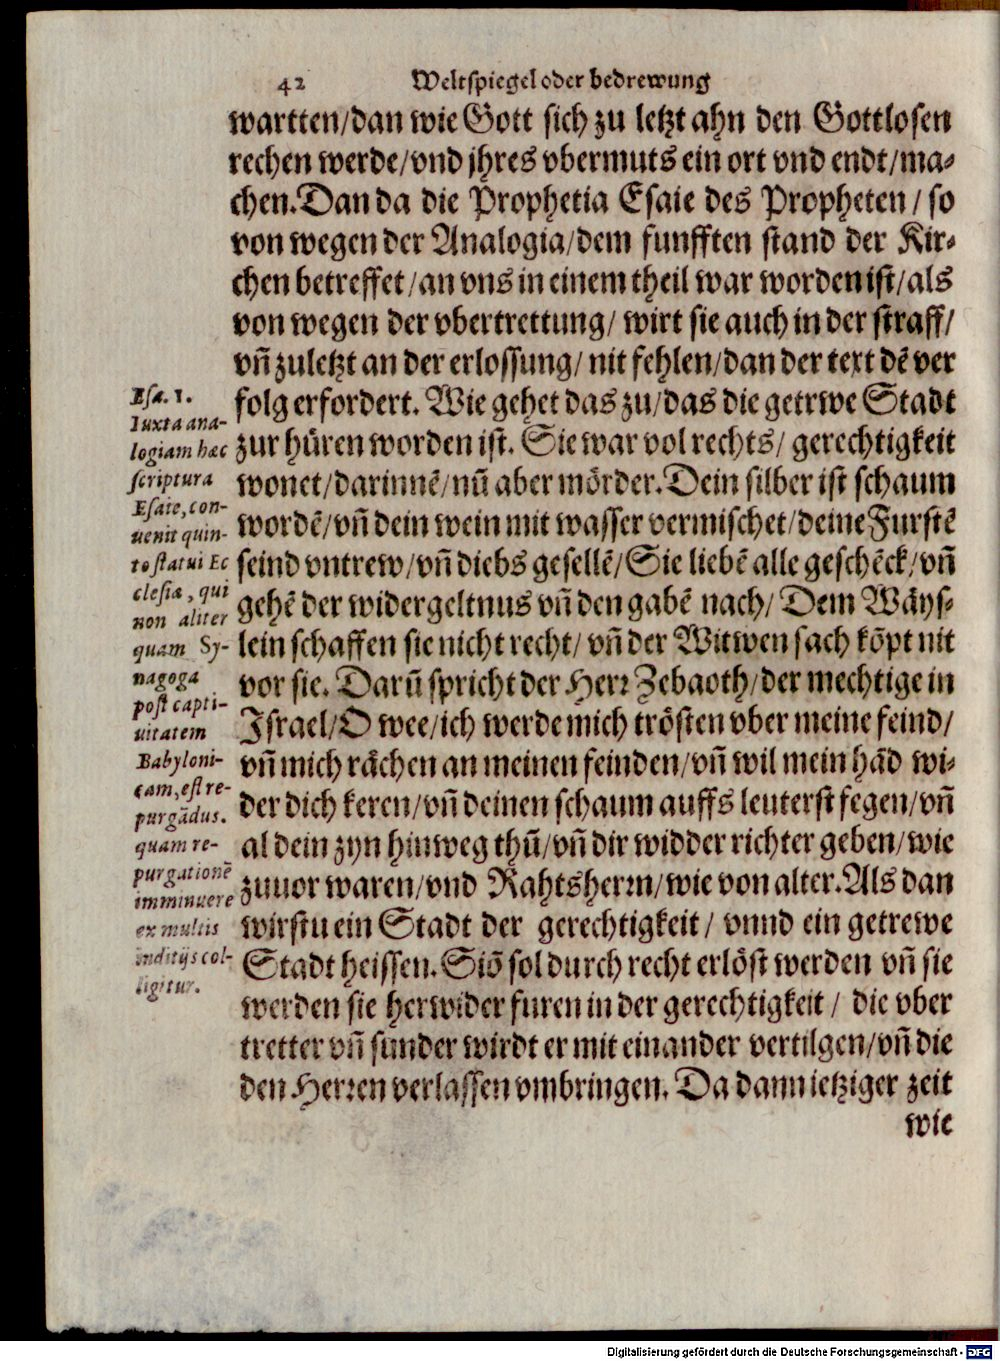 42 Weltspiegel oder bedrewung
wartten/dan wie Gott sich zu letzt ahn den Gottlosen
rechen werde/vnd jhres vbermuts ein ort vnd endt/ma-
chen. Dan da die Prophetia Esaie des Propheten / so
von wegen der Analogia/dem funfften stand der Kir-
chen betreffet/an vns in einem theil war worden ist/als
von wegen der vbertrettung/ wirt sie auch in der straff/
vñ zuletzt an der erlossung/ nit fehlen/dan der text dē ver
folg erfordert. Wie gehet das zu/das die getrwe Stadt
zur hůren worden ist. Sie war vol rechts/ gerechtigkeit
wonet/darinnē/nũ aber mörder. Dein silber ist schaum
wordē/vñ dein wein mit wasser vermischet/deine Furstē
seind vntrew/vñ diebs gesellē/Sie liebē alle geschēck/vñ
gehē der widergeltnus vñ den gabē nach/ Dem Wäys-
lein schaffen sie nicht recht/ vñ der Witwen sach kõpt nit
vor sie. Darũ spricht der Herr Zebaoth/der mechtige in
Israel/O wee/ich werde mich trösten vber meine feind/
vñ mich råchen an meinen feinden/vñ wil mein hãd wi-
der dich keren/vñ deinen schaum auffs leuterst fegen/vñ
al dein zyn hinweg thũ/vñ dir widder richter geben/wie
zuuor waren/vnd Rahtsherrn/wie von alter. Als dan
wirstu ein Stadt der gerechtigkeit/ vnnd ein getrewe
Stadt heissen. Siõ sol durch recht erlöst werden vñ sie
werden sie herwider furen in der gerechtigkeit / die vber
tretter vñ sunder wirdt er mit einander vertilgen/vñ die
den Herren verlassen vmbringen. Da dann ietziger zeit
wie
Esa. 1.
Iuxta ana-
logiam hæc
scriptura
Esaie, con-
uenit quin-
to statui Ec
clesiæ, qui
non aliter
quam Sy-
nagoga
post capti-
uitatem
Babyloni-
cam, est re-
purgãdus.
quam re-
purgationẽ
imminuere
ex multis
inditijs col-
ligitur.
Digitalisierung gefördert durch die Deutsche Forschungsgemeinschaft - DFG